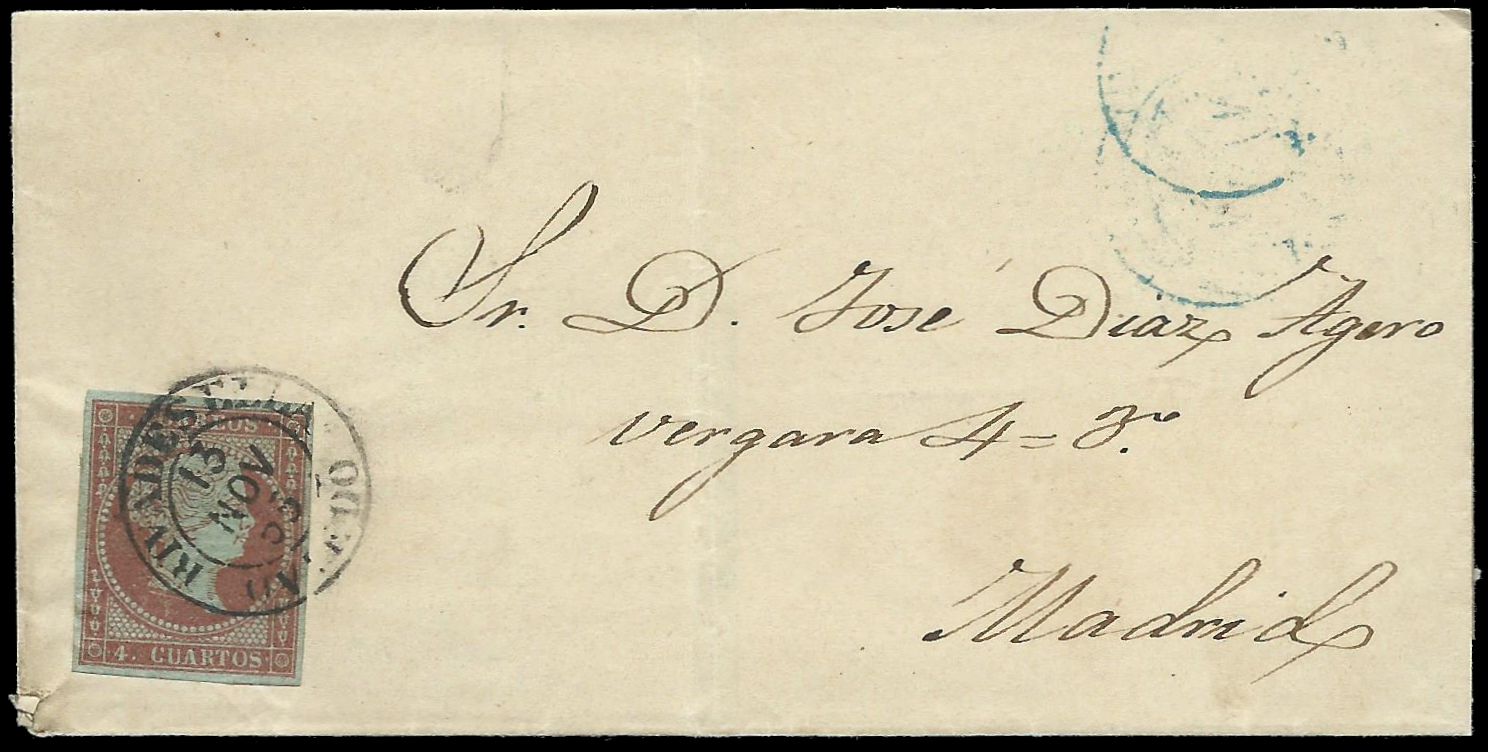 Sr. D. José Diaz Agero
vergara 4 = 3º
Madrid
RIVADESELLA
13
NOV
4. CUARTOS.